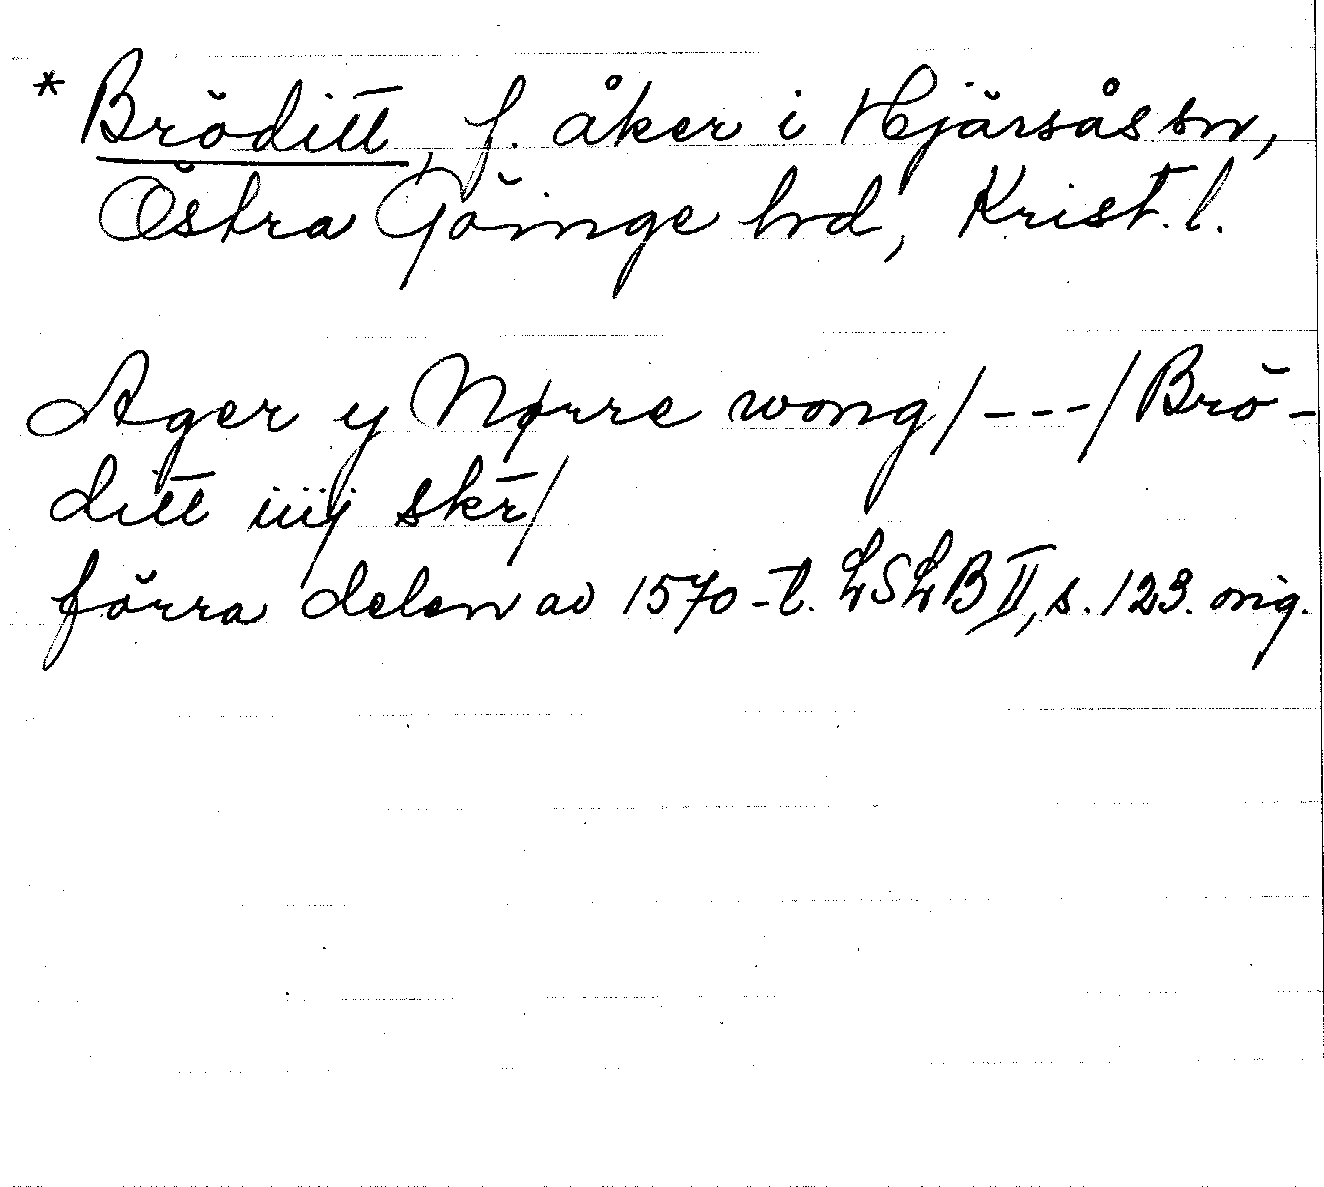 * Bröditt, f. åker i Hjärsås sn,
Östra Göinge hd, Krist. l.
Ager y Nørre wong/---/Brö-
ditt iiij skr̄/
förra delen av 1570-t. LSLB II, s. 123. orig.